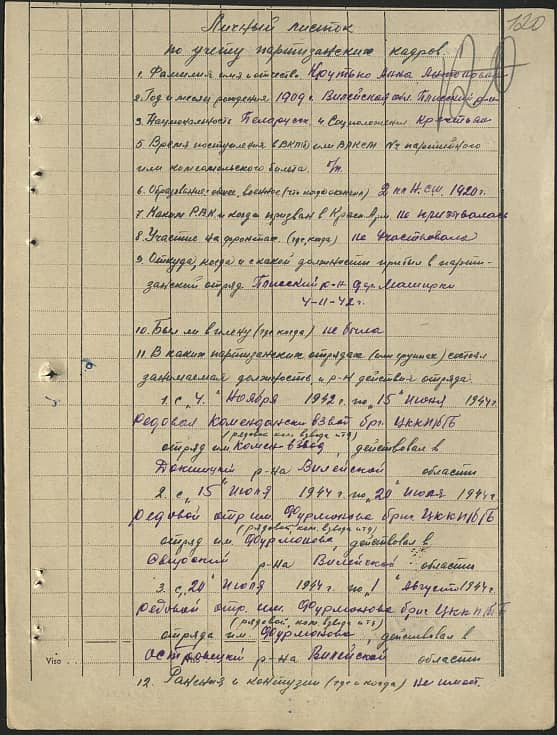 120
Личный листок
по учету партизанских кадров.
120
1. Фамилия имя и отчество Крутько Анна Антоновна
2. Год и месяц рождения 1909 г. Вилейской обл. Плисский р-н
3. Национальность Беларуск. 4 Соцположения Крестьян
5 Время поступления в ВКП(б) или ВЛКСМ № партийного
или комсомольского билета. б/п.
6. Образование: общее, военное (что когда окончил) 2 кл. Н.С.Ш. 1920 г.
7. Каким РВК и когда призван в Красн. Арм. не призывалась
8. Участие на фронтах. (где, когда) не участвовала
9. Откуда, когда и с какой должности прибыл в парти-
занский отряд Плисский р-н дер. Мамирки
4-11-42 г.
10. Был ли в плену (где когда) не была
11. В каких партизанских отрядах (или группах) состоял
занимаемая должность, и р-н действия отряда.
1. с "4" Ноября 1942 г. по "15" Июня 1944 г.
Редовая Комендански взвод бриг. ЦККП/б/Б
(рядовой, ком. взвода и тд)
отряд им. Комен взвод, действовал в
Докшицкий р-на Вилейской области
2. с "15" Июня 1944 г. по "20" Июля 1944 г.
редовой отр им. Фурмонова бриг. ЦККП/б/Б
(рядовой, ком. взвода и тд)
отряд им. Фурмонова, действовал в
Свирский р-на Вилейской области
3. с "20" Июля 1944 г. по "1" Август 1944 г.
редовой отр. им. Фурмонова бриг. ЦККП/б/Б
(рядовой, ком. взвода и тд)
отряда им. Фурмонова, действовал в
Островецкий р-на Вилейской области
Viso
12. Ранения и контузии (где и когда) не имеет.